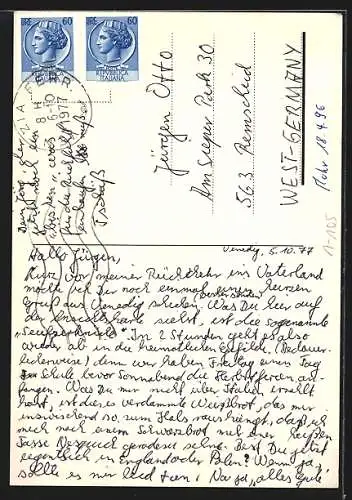 LIRE 60
LIRE 60
REPUBBLICA ITALIANA
1977
Jürgen Otto
Am Sieper Park 30
563 Remscheid
WEST-GERMANY
Rohr 18.4.96
1-105
Tschüß
Venedig, 5.10.77
Hallo Jürgen,
Kurz vor meiner Rückkehr ins Vaterland
möchte ich Dir noch einmal einen kurzen
Gruß aus Venedig schicken. Was Du hier auf
der siehst, ist die sogenannte
"Seufzerbrücke". In 2 Stunden geht es also
wieder ab in die heimatlichen Gefilde (Bedauer-
licherweise) denn wir haben Freitag einen Tag
Schule bevor Sonnabend die Herbstferien an-
fangen. Was Du mir nicht über Italien erzählt
hast, ist dieses verdammte Weißbrot, das mir
inzwischen so zum Hals raushängt, daß ich
mich nach einem Schwarzbrot mit einer heißen
Tasse Nescafé geradezu sehne. Bist Du jetzt
eigentlich in England oder Polen? Wenn ja,
sollte es mir leid tun. Na ja, alles Gute